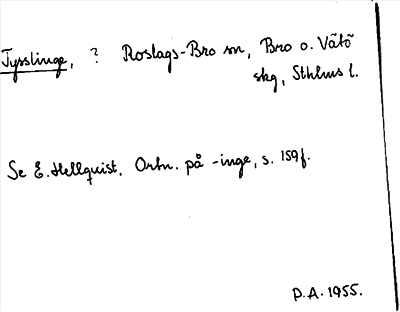 Tysslinge, ? Roslags-Bro sn, Bro o. Vätö
skg, Sthlms l.
Se E. Hellquist, Ortn. på -inge, s. 159f.
P.A. 1955.